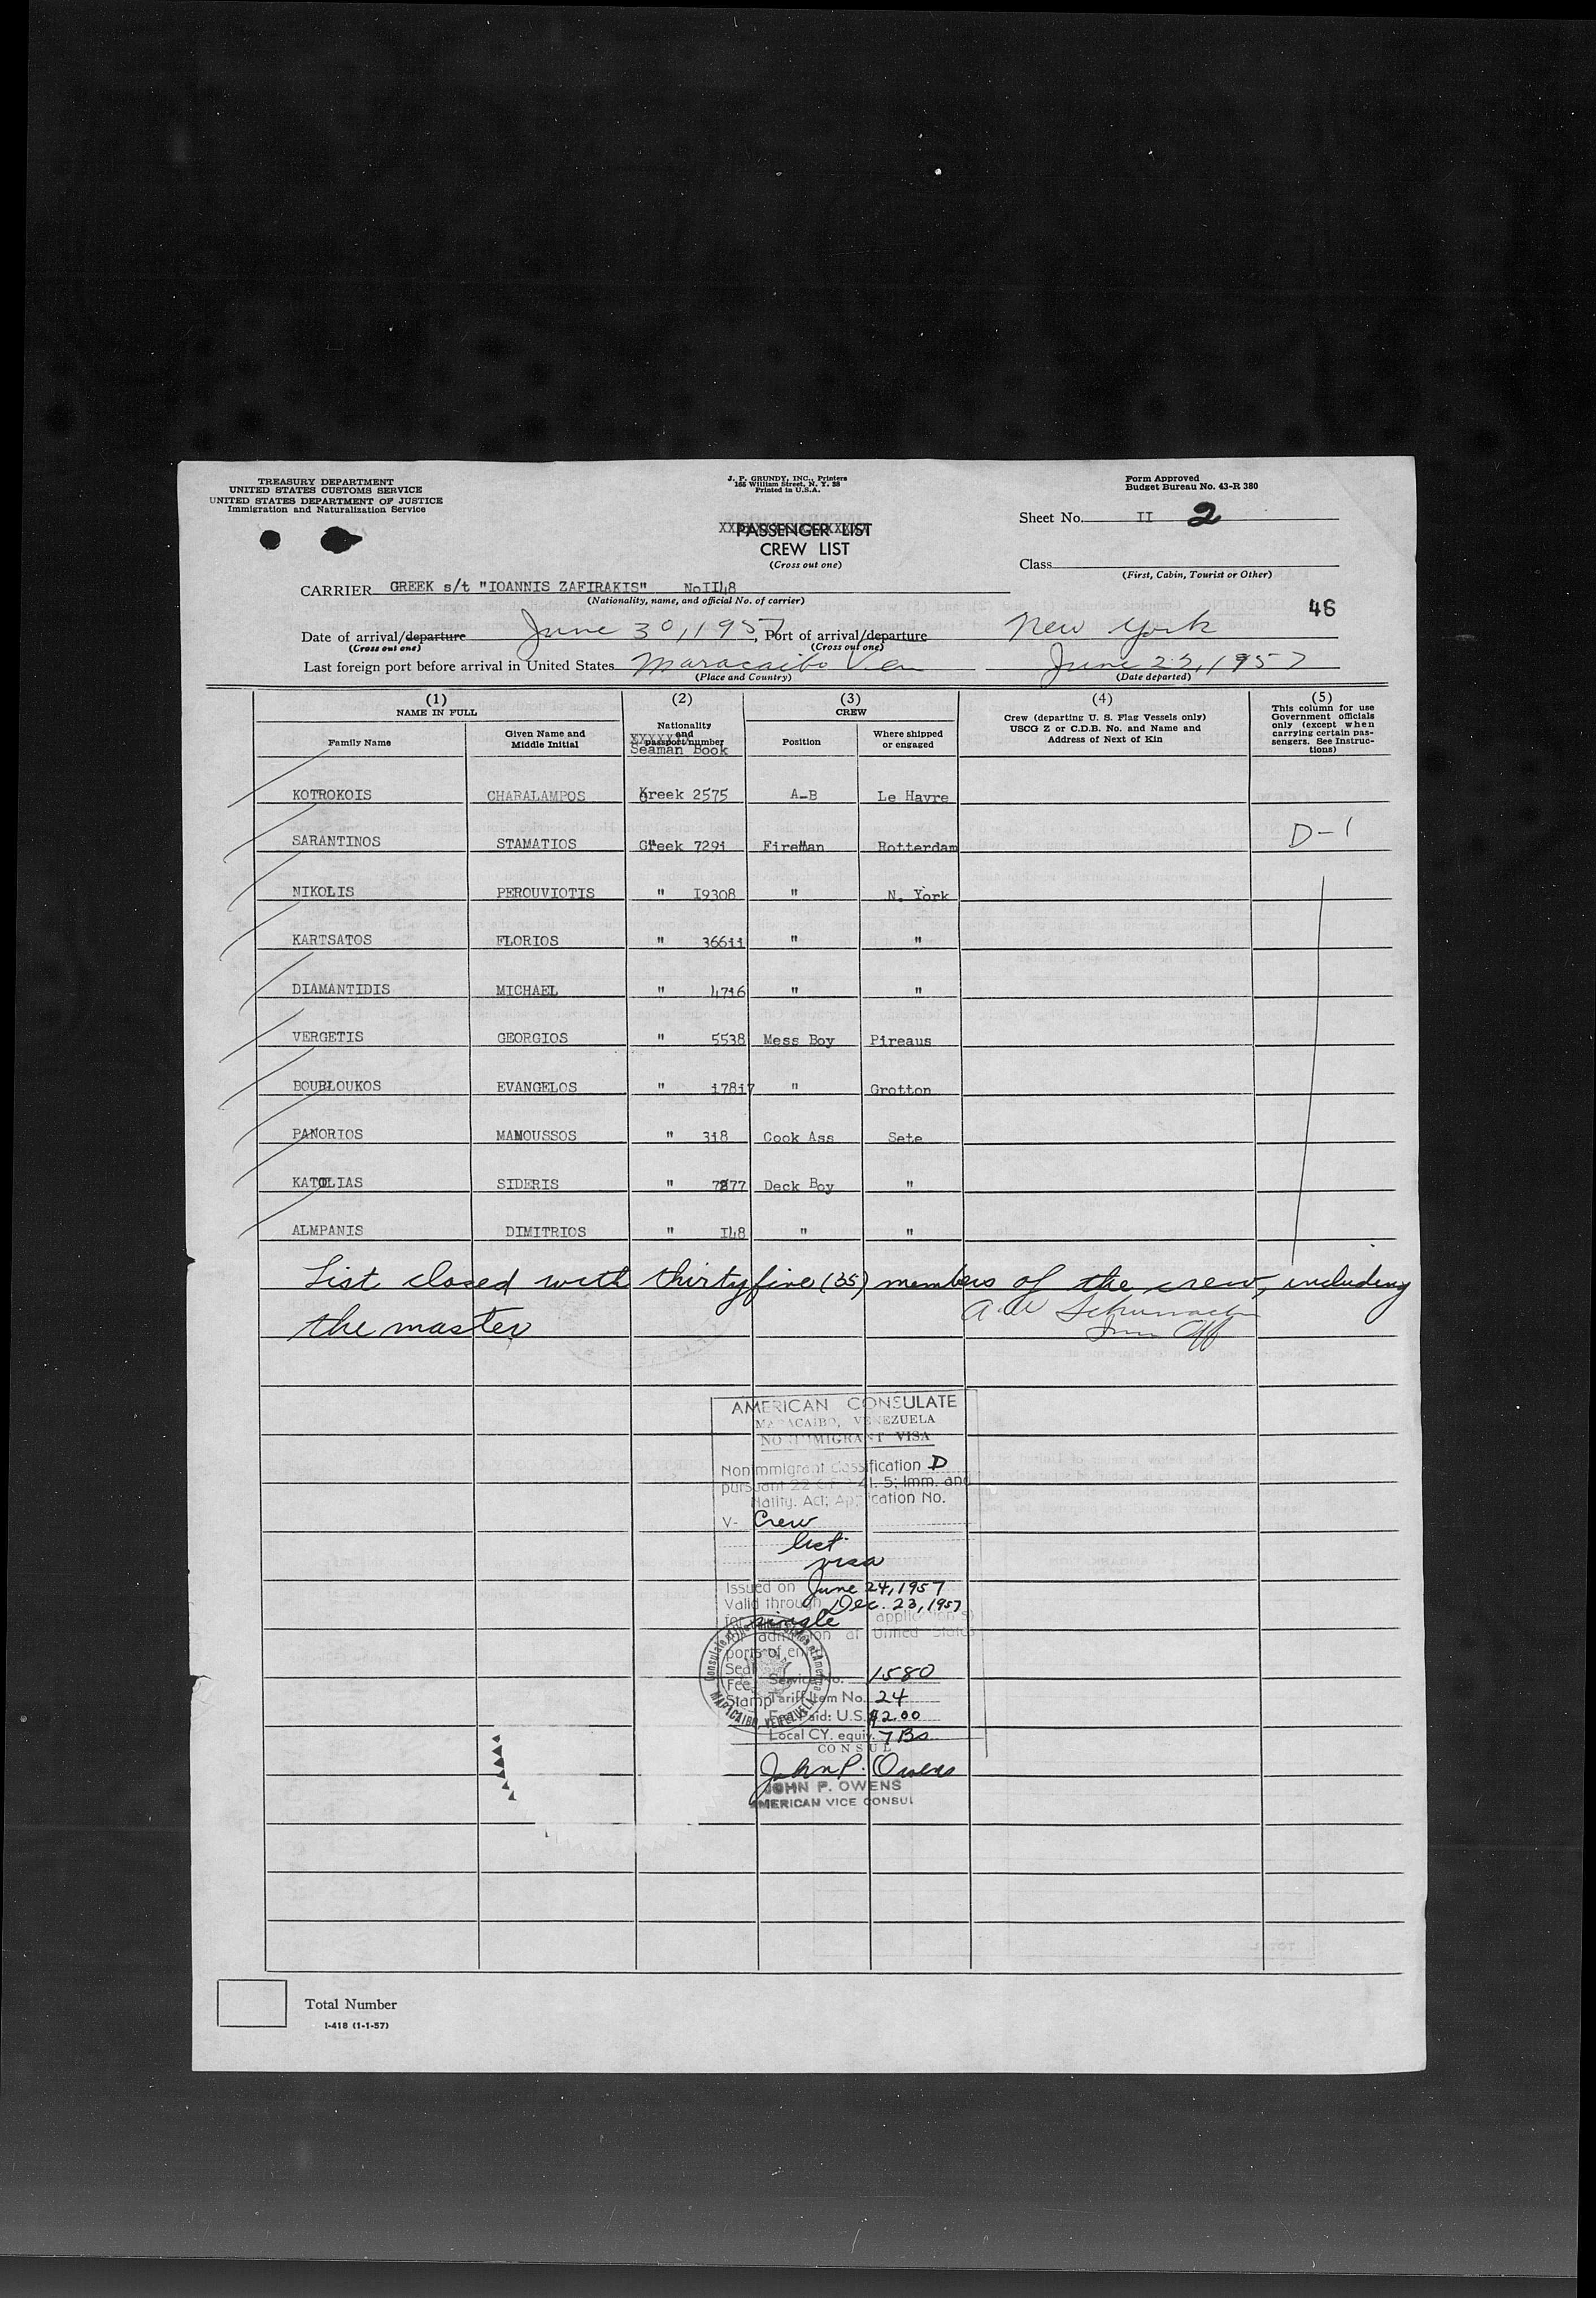 TREASURY DEPARTMENT
UNITED STATES CUSTOMS SERVICE
UNITED STATES DEPARTMENT OF JUSTICE
Immigration and Naturalization Service
J. P. GRUNDY, INC., Printers
165 William Street, N. Y. 38
Printed in U.S.A.
Form Approved
Budget Bureau No. 43-R 380
Sheet No. II 2
PASSENGER LIST
CREW LIST
(Cross out one)
Class
(First, Cabin, Tourist or Other)
CARRIER GREEK s/t "IOANNIS ZAFIRAKIS" No II48
(Nationality, name, and official No. of carrier)
46
Date of arrival/departure June 30, 1957, Port of arrival/departure New York
(Cross out one) (Cross out one)
Last foreign port before arrival in United States Maracaibo Ven June 23, 1957
(Place and Country) (Date departed)
(1) (2) (3) (4) (5)
NAME IN FULL
Family Name
Given Name and Middle Initial
Nationality and passport number
Seaman Book
CREW
Position
Where shipped or engaged
Crew (departing U. S. Flag Vessels only)
USCG Z or C.D.B. No. and Name and
Address of Next of Kin
This column for use
Government officials
only (except when
carrying certain pas-
sengers. See Instruc-
tions)
KOTROKOIS CHARALAMPOS Greek 2575 A-B Le Havre
SARANTINOS STAMATIOS Greek 7291 Fireman Rotterdam D-1
NIKOLIS PEROUVIOTIS " I9308 " N. York
KARTSATOS FLORIOS " 36611 " "
DIAMANTIDIS MICHAEL " 4716 " "
VERGETIS GEORGIOS " 5538 Mess Boy Pireaus
BOURLOUKOS EVANGELOS " 17817 " Grotton
PANORIOS MANOUSSOS " 318 Cook Ass Sete
KATOLIAS SIDERIS " 7877 Deck Boy "
ALMPANIS DIMITRIOS " I48 " "
List closed with thirty five (35) members of the crew, including
the master
A. W Schumach
Imm Off
AMERICAN CONSULATE
MARACAIBO, VENEZUELA
NONIMMIGRANT VISA
Nonimmigrant classification D
pursuant 22 41.5; Imm. and
Natlty. Act; Application No.
V- Crew
list
visa
Issued on June 24, 1957
Valid through Dec. 23, 1957
for single application(s)
for admission at United States
ports of entry
Seal
Fee
Stamp
Consulate of the United States of America
MARACAIBO, VENEZUELA
Service No. 1580
Tariff Item No. 24
Fee Paid: U.S. $2.00
Local CY. equiv. 7 Bs.
CONSUL
John P. Owens
JOHN P. OWENS
AMERICAN VICE CONSUL
Total Number
I-418 (1-1-57)